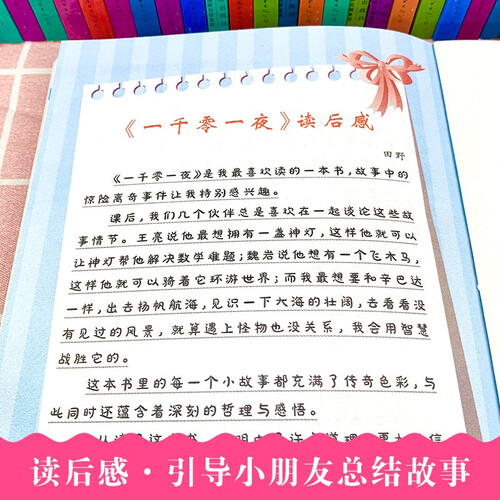 《一千零一夜》读后感
田野
《一千零一夜》是我最喜欢读的一本书,故事中的
惊险离奇事件让我特别感兴趣。
课后,我们几个伙伴总是喜欢在一起谈论这些故
事情节。王亮说他最想拥有一盏神灯,这样他就可以
让神灯帮他解决数学难题;魏岩说他想有一个飞木马,
这样他就可以骑着它环游世界;而我最想要和辛巴达
一样,出去扬帆航海,见识一下大海的壮阔,去看看没
有见过的风景,就算遇上怪物也没关系,我会用智慧
战胜它的。
这本书里的每一个小故事都充满了传奇色彩,与
此同时还蕴含着深刻的哲理与感悟。
读后感·引导小朋友总结故事